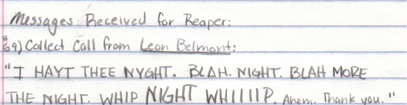 Messages Received for Reaper:
#69) Collect Call from Leon Belmont:
"I HAYT THEE NYGHT. BLAH. NIGHT. BLAH MORE
THE NIGHT. WHIP NIGHT WHIIIIP. Ahem. Thank you."